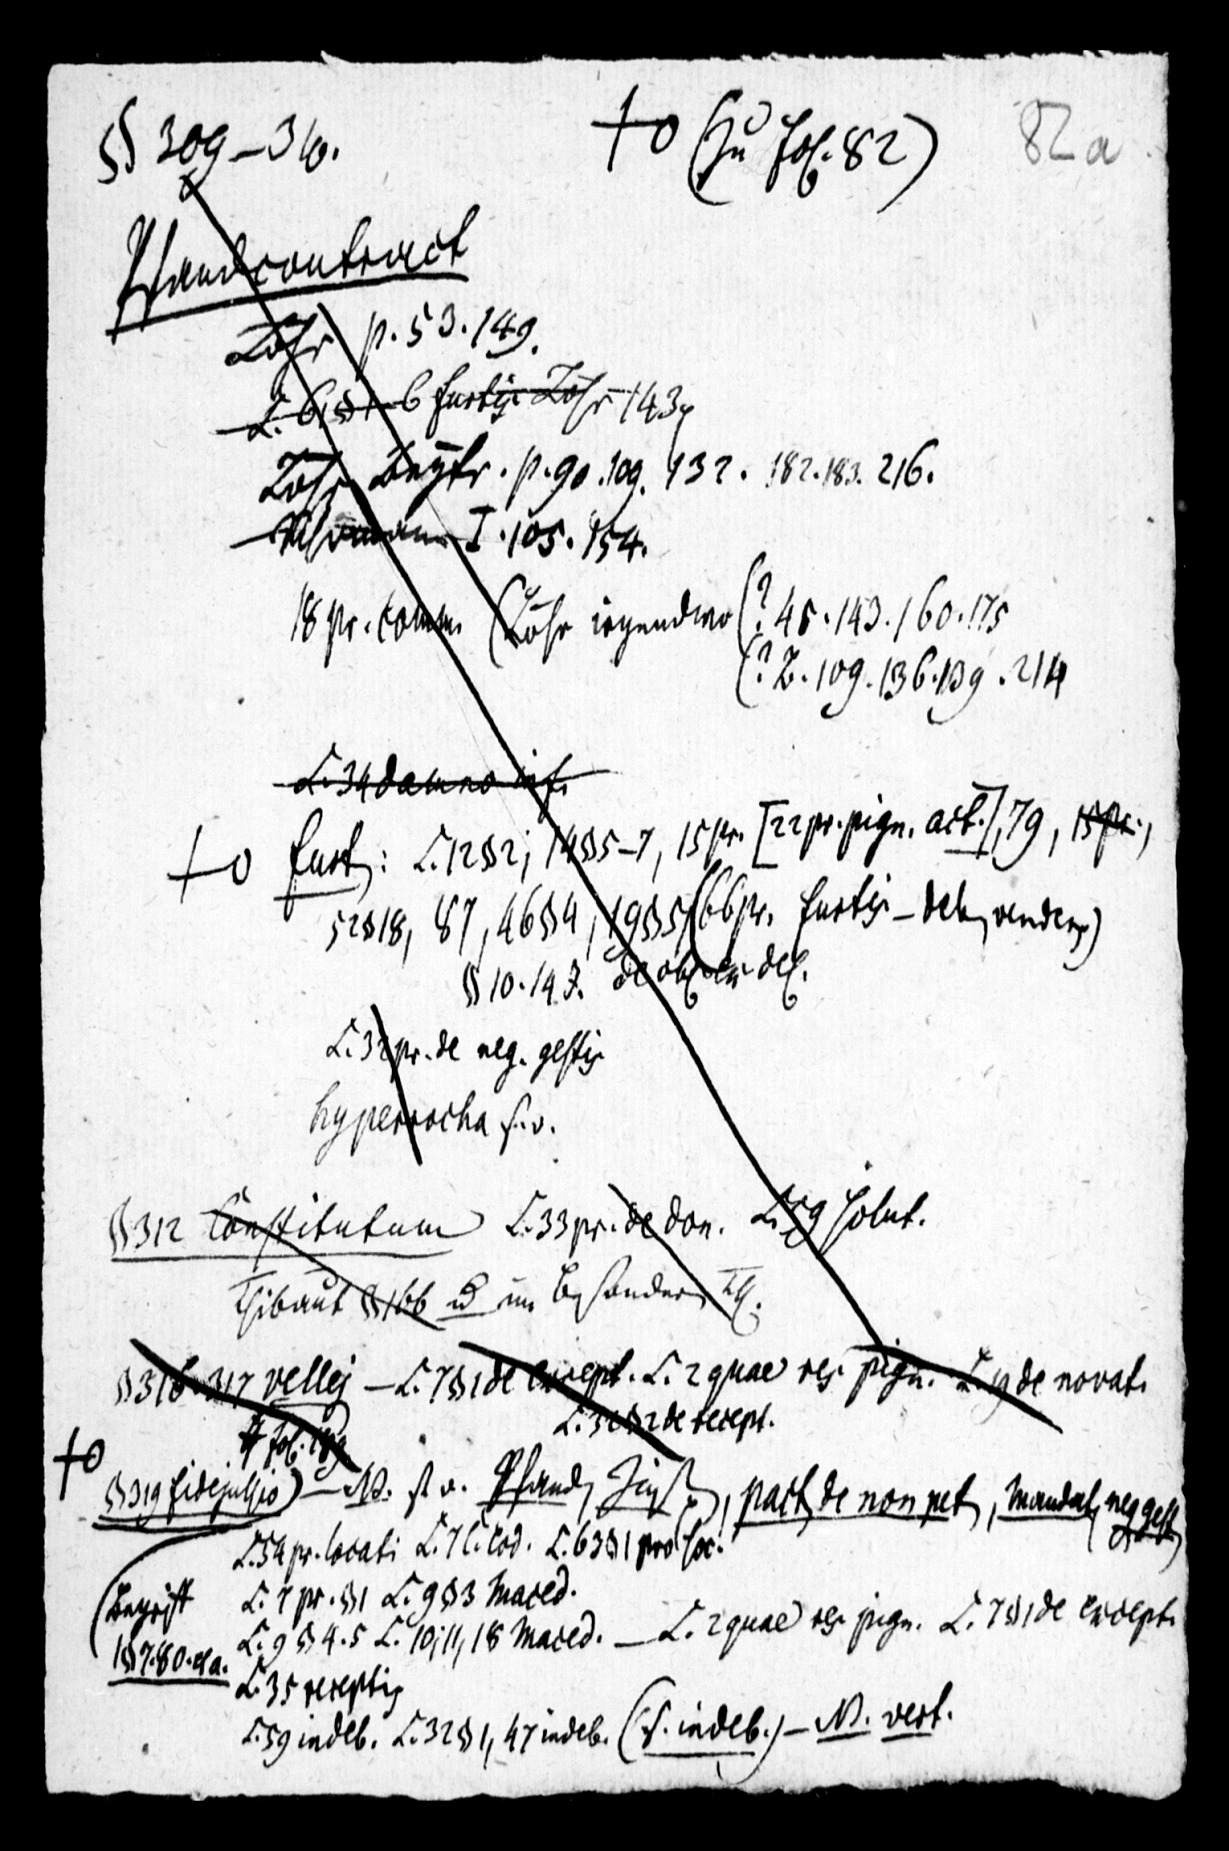 §§ 309–310. +o (Zu fol. 82) 82a
Pfandcontract
Löhr p. 53. 149.
L. 6 § 6 furtis Löhr 143
Löhr Beytr. p. 90. 109. 132. 182. 183. 216.
I. 105. 154.
18 pr. comm. (Löhr irgendwo (? 45. 143. 160. 175
(? B. 109. 136. 139. 214
L. 34 damno inf.
+o furt.: L. 12 § 2; 14 § 5–7, 15 pr. [22 pr. pign. act.], 79, 15 pr.,
52 § 18, 87, 46 § 4, 19 § 5 (66 pr. furtis – deb. vendens)
§ 10. 14 J. de obl. ex del.
L. 32 pr. de neg. gestis
hyperocha s. v.
§ 312 Constitutum L. 33 pr. de don. L. 59 solut.
Thibaut § 166 im besondern Th.
§ 316. 317 vellej – L. 7 § 1 de except. L. 2 quae res pign. L. 19 de novat.
fol. 189 L. 32 § 2 de recept.
+o
§ 319 fidejussio) – N. s. v. Pfand, , pact. de non pet., mandat, neg gest
L. 54 pr. locati L. 7 C. Cod. L. 63 § 1 pro soc.
(Begriff L. 7 pr. § 1 L. 9 § 3 Maced.
L. 9 § 4. 5 L. 10, 11, 18 Maced. – L. 2 quae res pign. L. 7 § 1 de except.
1 § 7. 80. L. 35 receptis
L. 59 indeb. L. 32 § 1, 47 indeb. (s. indeb.) – N. vert.